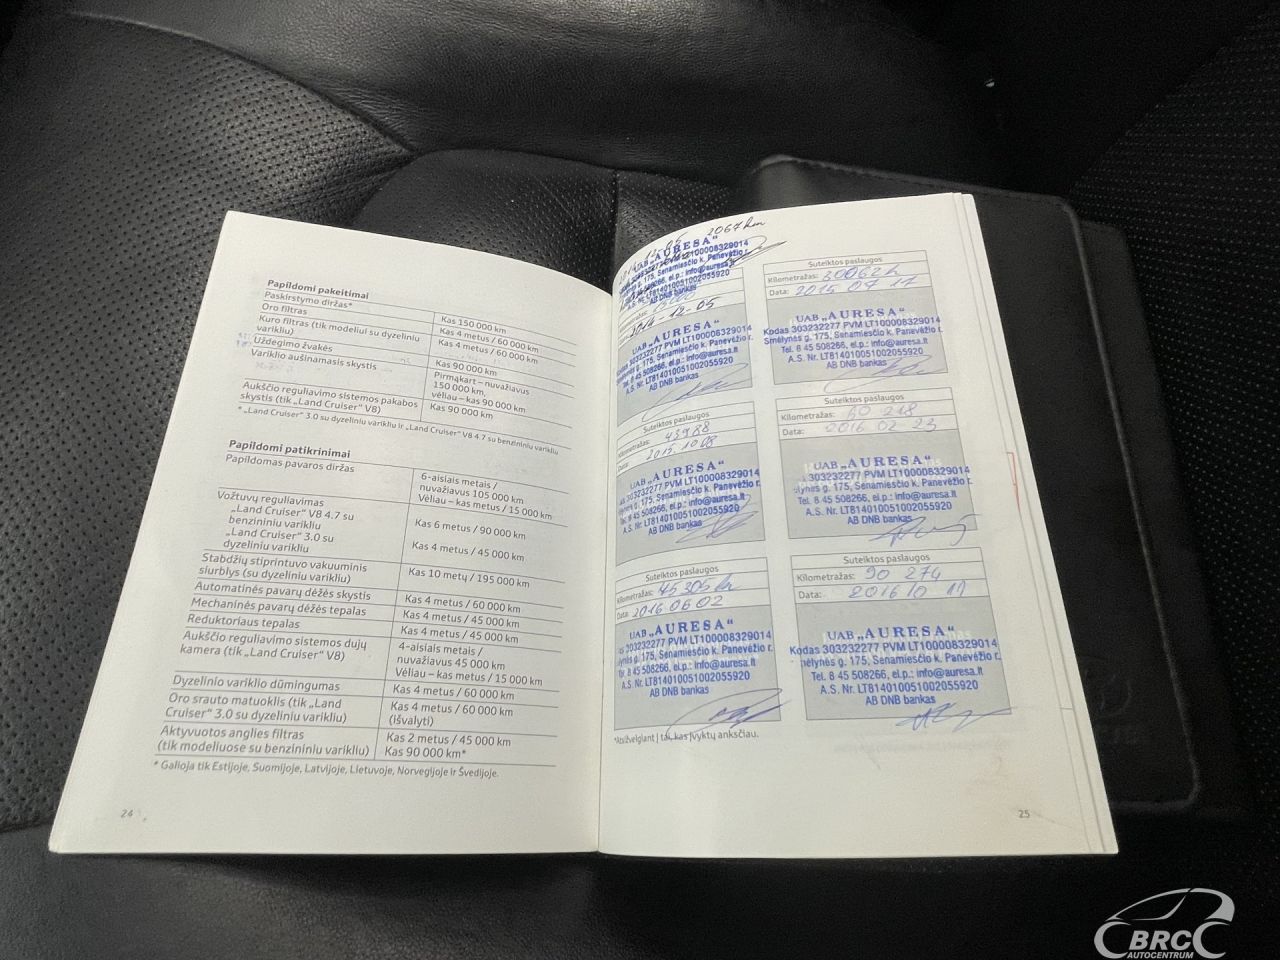 Papildomi pakeitimai
Paskirstymo diržas* Kas 150 000 km
Oro filtras Kas 4 metus / 60 000 km
Kuro filtras (tik modeliui su dyzeliniu varikliu) Kas 4 metus / 60 000 km
Uždegimo žvakės Kas 90 000 km
Variklio aušinamasis skystis Pirmąkart – nuvažiavus
150 000 km,
vėliau – kas 90 000 km
Aukščio reguliavimo sistemos pakabos
skystis (tik „Land Cruiser“ V8) Kas 90 000 km
* „Land Cruiser“ 3.0 su dyzeliniu varikliu ir „Land Cruiser“ V8 4.7 su benzininiu varikliu
Papildomi patikrinimai
Papildomas pavaros diržas 6-aisiais metais /
nuvažiavus 105 000 km
Vėliau – kas metus / 15 000 km
Vožtuvų reguliavimas
„Land Cruiser“ V8 4.7 su
benzininiu varikliu Kas 6 metus / 90 000 km
„Land Cruiser“ 3.0 su
dyzeliniu varikliu Kas 4 metus / 45 000 km
Stabdžių stiprintuvo vakuuminis
siurblys (su dyzeliniu varikliu) Kas 10 metų / 195 000 km
Automatinės pavarų dėžės skystis Kas 4 metus / 60 000 km
Mechaninės pavarų dėžės tepalas Kas 4 metus / 45 000 km
Reduktoriaus tepalas Kas 4 metus / 45 000 km
Aukščio reguliavimo sistemos dujų
kamera (tik „Land Cruiser“ V8) 4-aisiais metais /
nuvažiavus 45 000 km
Vėliau – kas metus / 15 000 km
Dyzelinio variklio dūmingumas Kas 4 metus / 60 000 km
Oro srauto matuoklis (tik „Land
Cruiser“ 3.0 su dyzeliniu varikliu) Kas 4 metus / 60 000 km
(išvalyti)
Aktyvuotos anglies filtras
(tik modeliuose su benzininiu varikliu) Kas 2 metus / 45 000 km
Kas 90 000 km*
* Galioja tik Estijoje, Suomijoje, Latvijoje, Lietuvoje, Norvegijoje ir Švedijoje.
24
2067 km
UAB „AURESA“
LT100008329014
g. 175, Senamiesčio k. Panevėžio r.
el.p.: info@auresa.lt
A.S. Nr. LT814010051002055920
AB DNB bankas
2014-12-05
UAB „AURESA“
303232277 PVM LT100008329014
g. 175, Senamiesčio k. Panevėžio r.
Tel. 8 45 508266, el.p.: info@auresa.lt
A.S. Nr. LT814010051002055920
AB DNB bankas
Suteiktos paslaugos
Kilometražas: 30062 k
Data: 2015 07 17
UAB „AURESA“
Kodas 303232277 PVM LT100008329014
Smėlynės g. 175, Senamiesčio k. Panevėžio r.
Tel. 8 45 508266, el.p.: info@auresa.lt
A.S. Nr. LT814010051002055920
AB DNB bankas
Suteiktos paslaugos
Kilometražas: 43988
Data: 2015.10 08
UAB „AURESA“
303232277 PVM LT100008329014
g. 175, Senamiesčio k. Panevėžio r.
Tel. 8 45 508266, el.p.: info@auresa.lt
A.S. Nr. LT814010051002055920
AB DNB bankas
Suteiktos paslaugos
Kilometražas: 60 218
Data: 2016 02 23
UAB „AURESA“
303232277 PVM LT100008329014
g. 175, Senamiesčio k. Panevėžio r.
Tel. 8 45 508266, el.p.: info@auresa.lt
A.S. Nr. LT814010051002055920
AB DNB bankas
Suteiktos paslaugos
Kilometražas: 45 305 km
Data: 2016 06 02
UAB „AURESA“
303232277 PVM LT100008329014
g. 175, Senamiesčio k. Panevėžio r.
8 45 508266, el.p.: info@auresa.lt
A.S. Nr. LT814010051002055920
AB DNB bankas
Suteiktos paslaugos
Kilometražas: 90 274
Data: 2016 10 11
UAB „AURESA“
Kodas 303232277 PVM LT100008329014
Smėlynės g. 175, Senamiesčio k. Panevėžio r.
Tel. 8 45 508266, el.p.: info@auresa.lt
A.S. Nr. LT814010051002055920
AB DNB bankas
*Atsižvelgiant į tai, kas įvyktų anksčiau.
25
BRC
AUTOCENTRUM